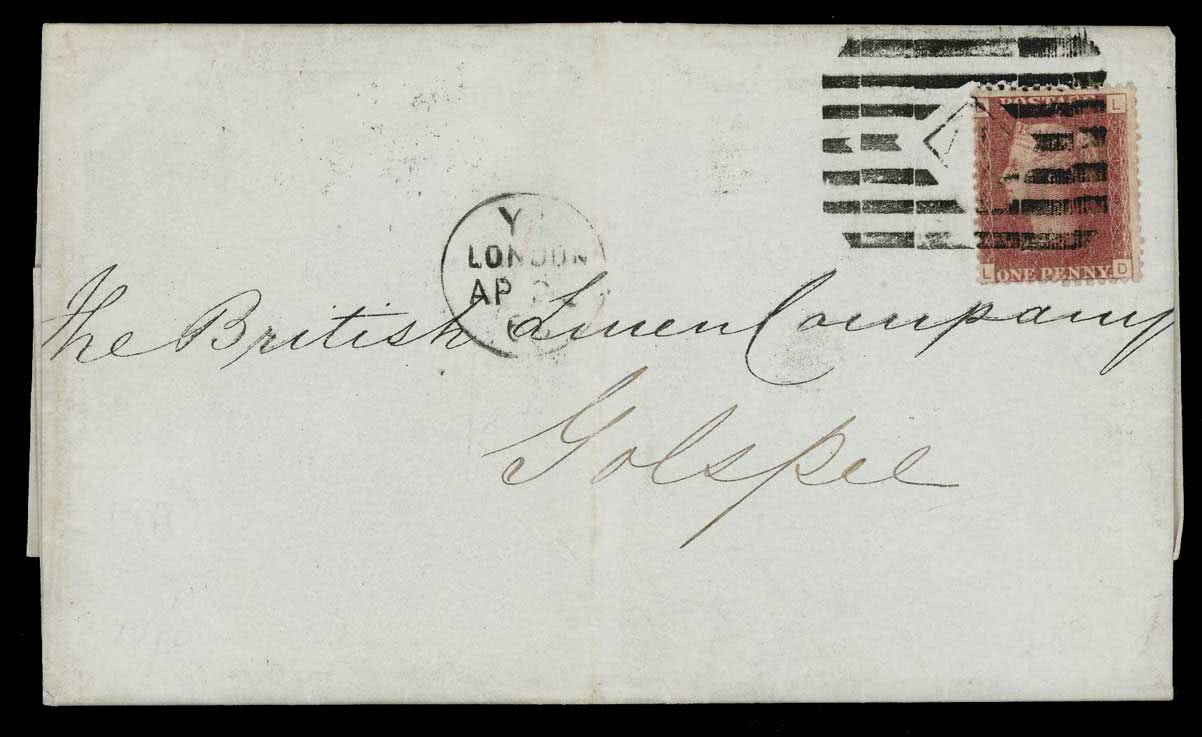 POSTAGE
L
L D
ONE PENNY.
Y
LONDON
AP
The British Linen Company
Golspie